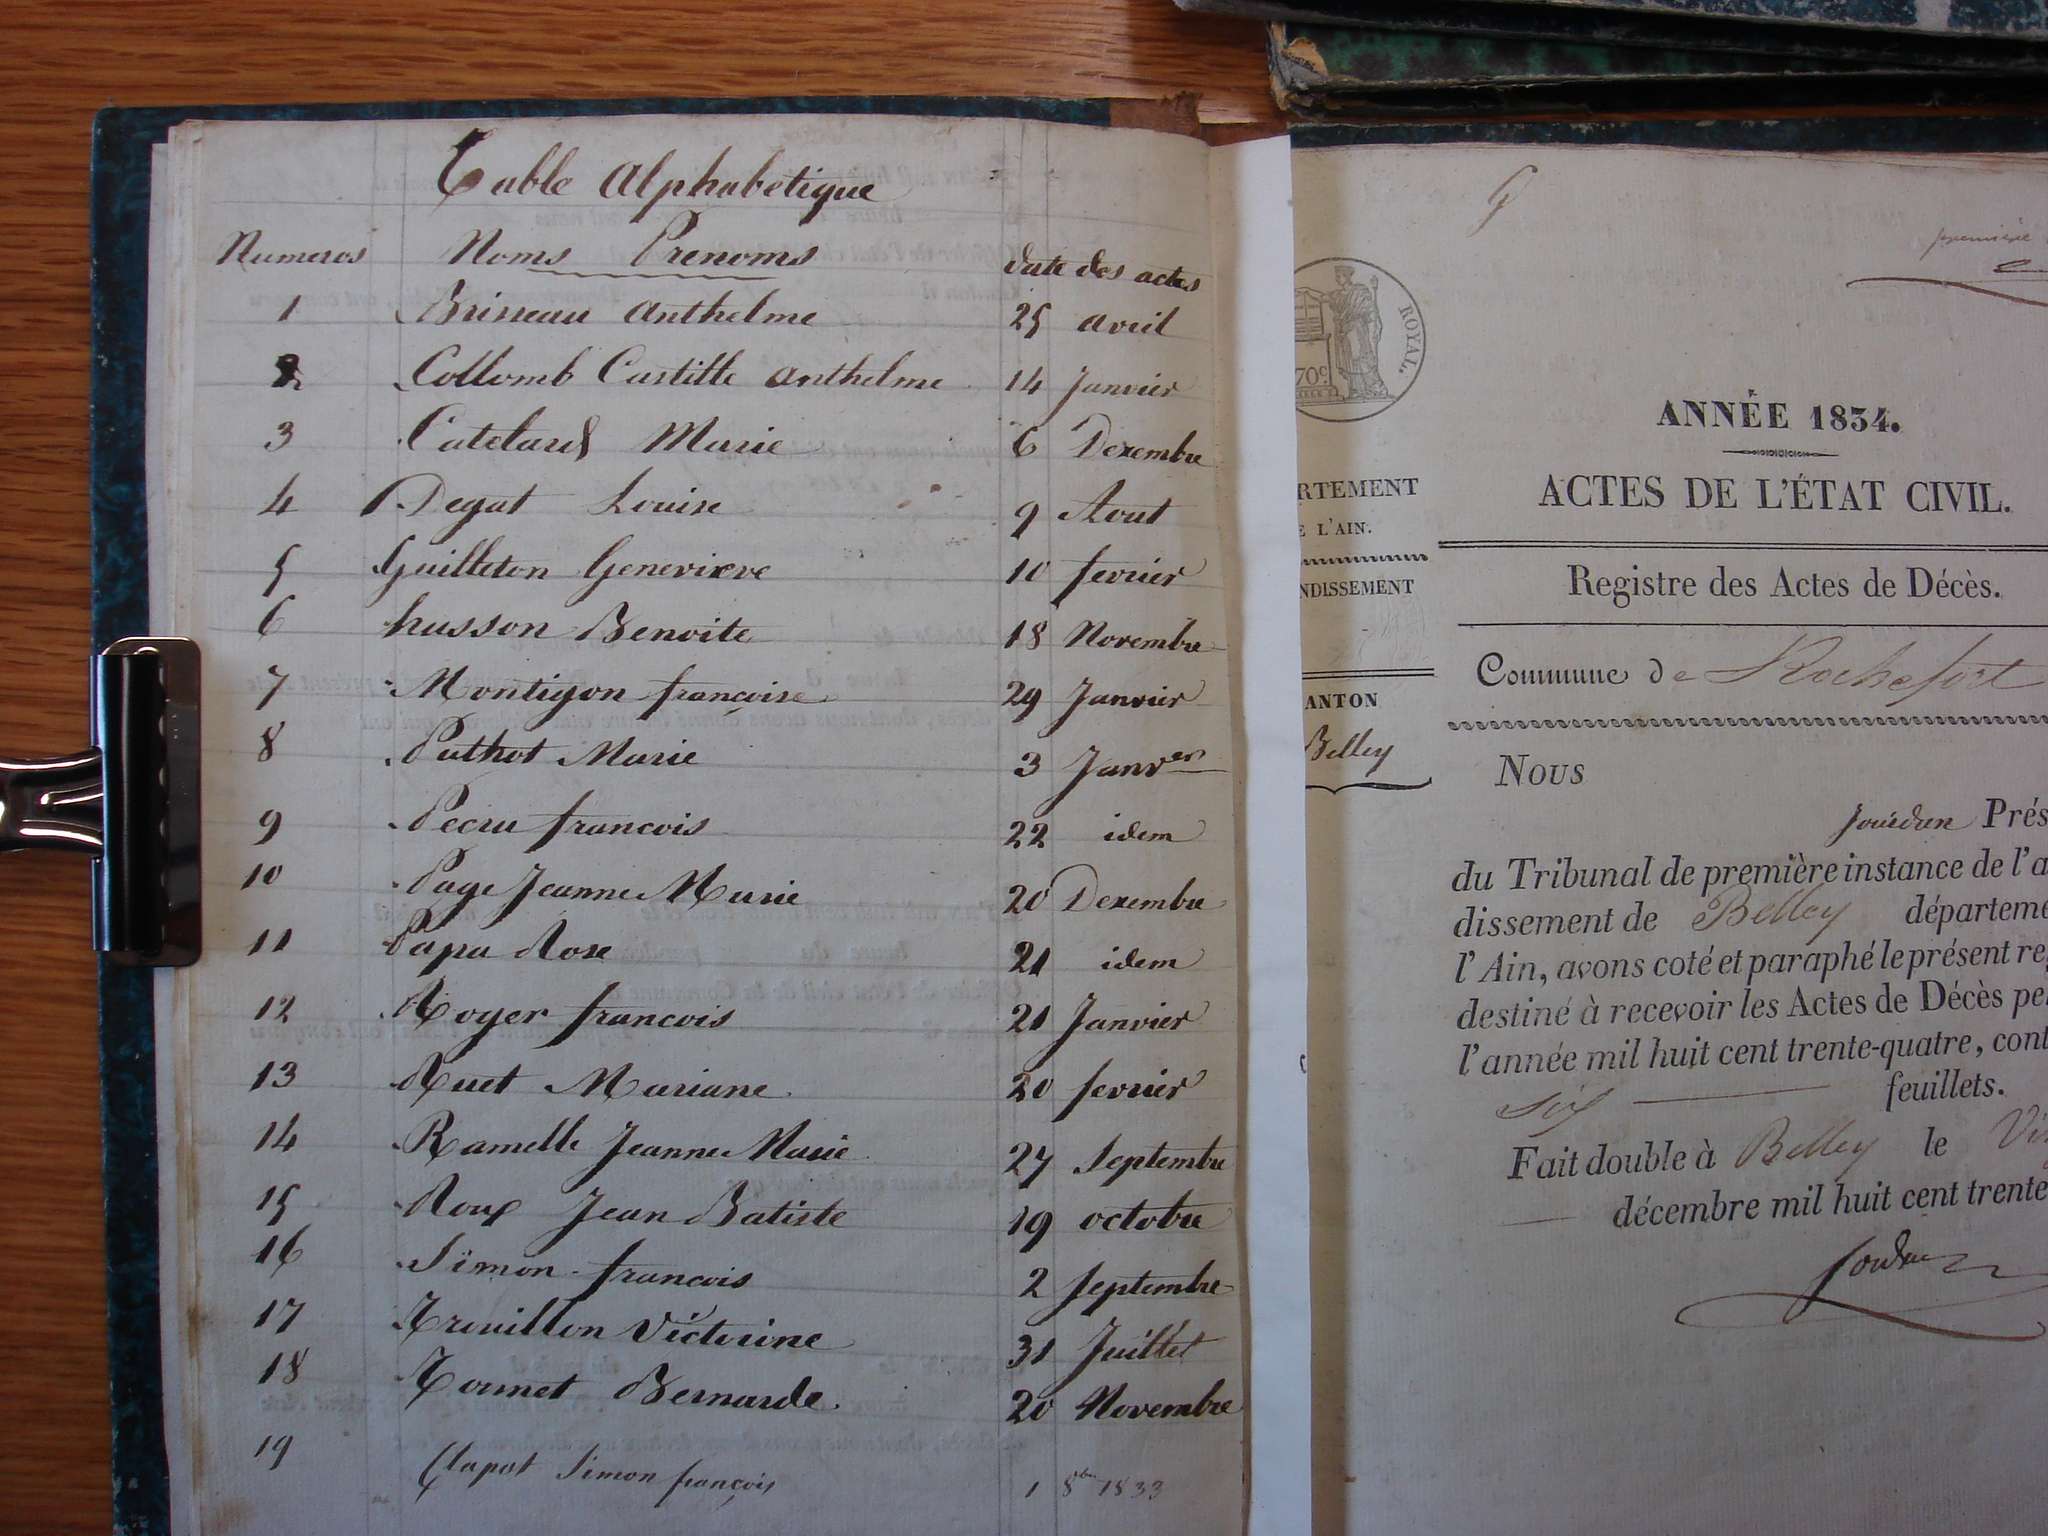 Table Alphabetique
Numeros Noms Prenoms date des actes
1 Brisseau Anthelme 25 avril
2 Collomb Castille Anthelme 14 Janvier
3 Catelard Marie 6 Dexembre
4 Degat Louise 9 Aout
5 Guilleton Genevieve 10 fevrier
6 husson Benoite 18 Novembre
7 Montigon françoise 29 Janvier
8 Puthot Marie 3 Janver
9 Pecru francois 22 idem
10 Page Jeanne Marie 20 Dexembre
11 Papa Rose 21 idem
12 Royer francois 21 Janvier
13 Ruet Mariane 20 fevrier
14 Ramelle Jeanne Marie 27 Septembre
15 Roux Jean Batiste 19 octobre
16 Simon francois 2 Septembre
17 Trouillon Victorine 31 Juillet
18 Tournet Bernarde 20 Novembre
19 Clapot Simon françois 1 8bre 1833
première
ROYAL.
70c
ANNÉE 1834.
RTEMENT
E L'AIN.
ACTES DE L'ÉTAT CIVIL.
NDISSEMENT
Registre des Actes de Décès.
Commune de Rochefort
ANTON
Belley
Nous
Jourdan Prés
du Tribunal de première instance de l'a
dissement de Belley départeme
l'Ain, avons coté et paraphé le présent re
destiné à recevoir les Actes de Décès pe
l'année mil huit cent trente-quatre, cont
Six feuillets.
Fait double à Belley le
décembre mil huit cent trente